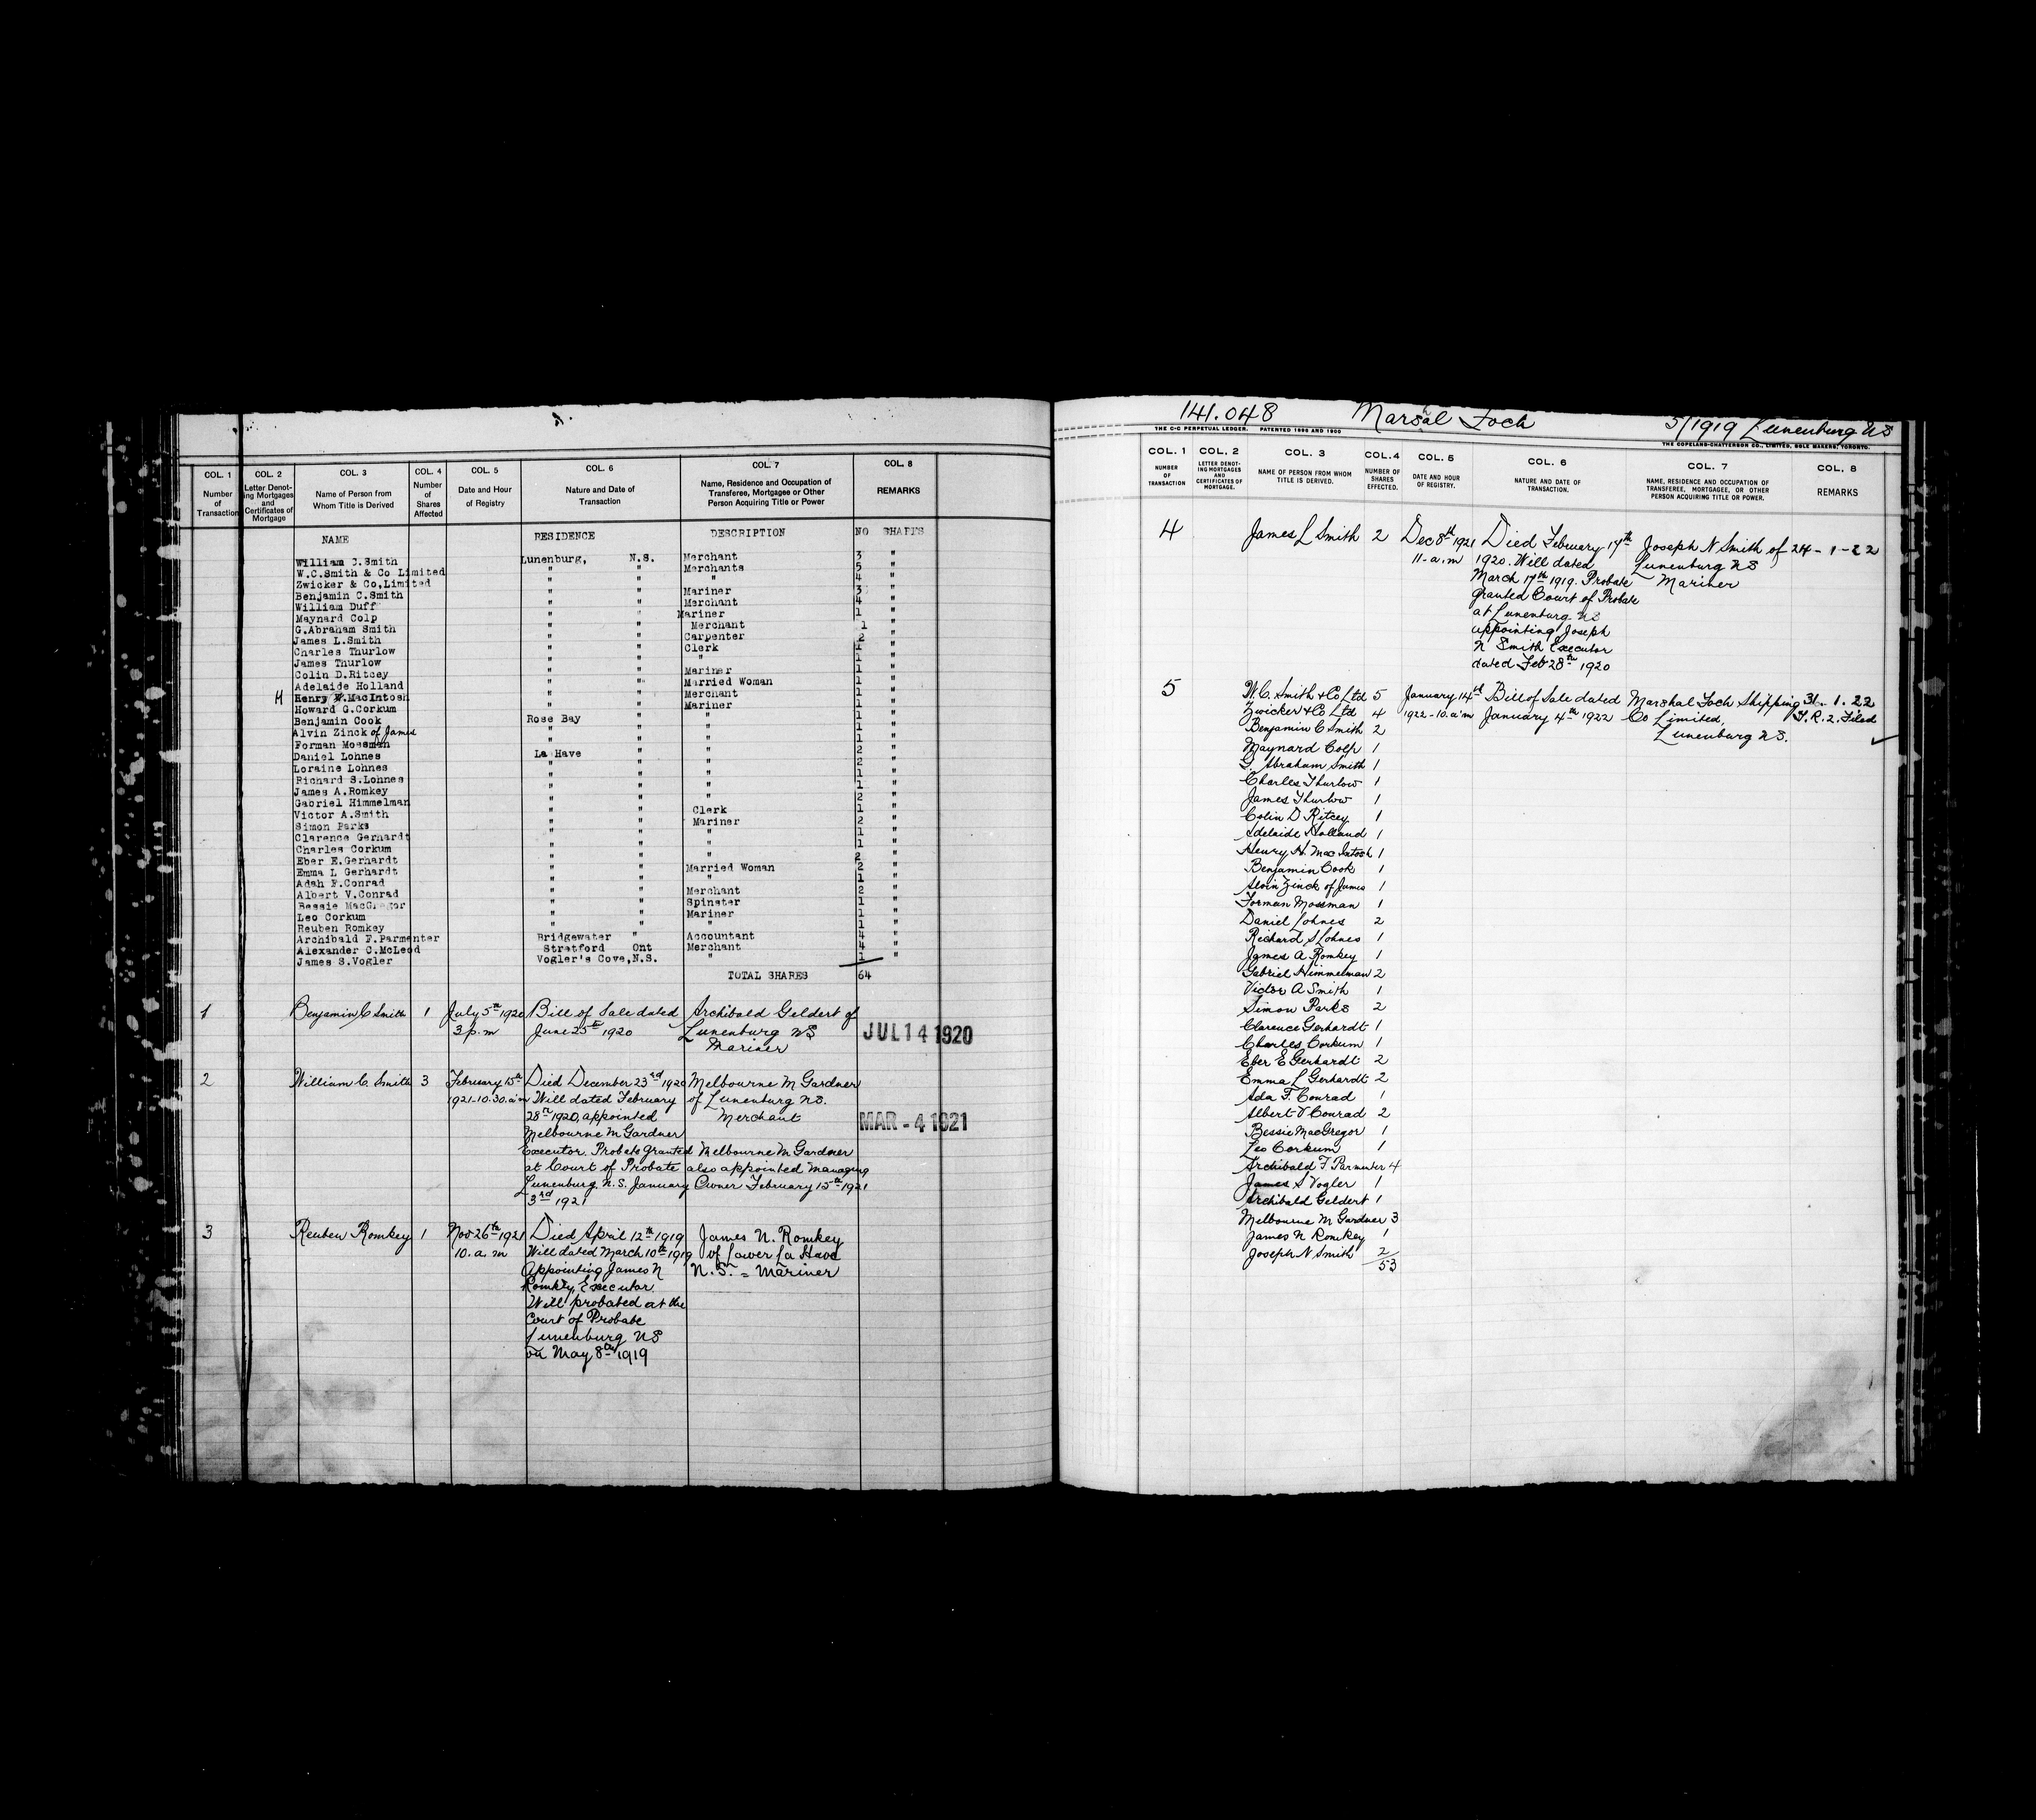 COL. 1 COL. 2 COL. 3 COL. 4 COL. 5 COL. 6 COL. 7 COL. 8
Number of Transaction
Letter Denoting Mortgages and Certificates of Mortgage
Name of Person from Whom Title is Derived
Number of Shares Affected
Date and Hour of Registry
Nature and Date of Transaction
Name, Residence and Occupation of Transferee, Mortgagee or Other Person Acquiring Title or Power
REMARKS
NAME RESIDENCE DESCRIPTION NO SHARES
William C.Smith Lunenburg, N.S. Merchant 3 "
W.C.Smith & Co Limited " " Merchants 5 "
Zwicker & Co,Limited " " " 4 "
Benjamin C.Smith " " Mariner 3 "
William Duff " " Merchant 4 "
Maynard Colp " " Mariner 1 "
G.Abraham Smith " " Merchant 1 "
James L.Smith " " Carpenter 2 "
Charles Thurlow " " Clerk 1 "
James Thurlow " " " 1 "
Colin D.Ritcey " " Mariner 1 "
Adelaide Holland " " Married Woman 1 "
H Henry W.MacIntosh " " Merchant 1 "
Howard G.Corkum " " Mariner 1 "
Benjamin Cook Rose Bay " " 1 "
Alvin Zinck of James " " " 1 "
Forman Mossman " " " 1 "
Daniel Lohnes La Have " " 2 "
Loraine Lohnes " " " 2 "
Richard S.Lohnes " " " 1 "
James A.Romkey " " " 1 "
Gabriel Himmelman " " " 2 "
Victor A.Smith " " Clerk 1 "
Simon Parks " " Mariner 2 "
Clarence Gerhardt " " " 1 "
Charles Corkum " " " 1 "
Eber E.Gerhardt " " " 2 "
Emma L Gerhardt " " Married Woman 2 "
Adah F.Conrad " " " 1 "
Albert V.Conrad " " Merchant 2 "
Bessie MacGregor " " Spinster 1 "
Leo Corkum " " Mariner 1 "
Reuben Romkey " " " 1 "
Archibald F.Parmenter Bridgewater " Accountant 4 "
Alexander C.McLeod Stratford Ont Merchant 4 "
James S.Vogler Vogler's Cove,N.S. " 1 "
TOTAL SHARES 64
1 Benjamin C Smith 1 July 5th 1920 Bill of Sale dated Archibald Geldert of
3 p.m June 25th 1920 Lunenburg NS JUL 14 1920
Mariner
2 William C. Smith 3 February 15th Died December 23rd 1920 Melbourne M Gardner
1921-10.30.a'm Will dated February of Lunenburg N.S.
28th 1920, appointed Merchant MAR -4 1921
Melbourne M Gardner
Executor. Probate granted Melbourne M Gardner
at Court of Probate also appointed Managing
Lunenburg. N.S. January Owner February 15th 1921
3rd 1921
3 Reuben Romkey 1 Nov 26th 1921 Died April 12th 1919 James N. Romkey
10.a.m Will dated March 10th 1919 of Lower La Have
Appointing James N N.S. = Mariner
Romkey, Executor
Will probated at the
Court of Probate
Lunenburg NS
on May 8th 1919
141.048 Marshal Foch 5/1919 Lunenburg NS
THE C-C PERPETUAL LEDGER. PATENTED 1898 AND 1900
THE COPELAND-CHATTERSON CO., LIMITED, SOLE MAKERS, TORONTO.
COL. 1 COL. 2 COL. 3 COL. 4 COL. 5 COL. 6 COL. 7 COL. 8
NUMBER OF TRANSACTION
LETTER DENOTING MORTGAGES AND CERTIFICATES OF MORTGAGE.
NAME OF PERSON FROM WHOM TITLE IS DERIVED.
NUMBER OF SHARES EFFECTED.
DATE AND HOUR OF REGISTRY.
NATURE AND DATE OF TRANSACTION.
NAME, RESIDENCE AND OCCUPATION OF TRANSFEREE, MORTGAGEE, OR OTHER PERSON ACQUIRING TITLE OR POWER.
REMARKS
4 James L Smith 2 Dec 8th 1921 Died February 17th Joseph N Smith of 24-1-22
11-a.m 1920. Will dated Lunenburg NS
March 17th 1919. Probate Mariner
granted Court of Probate
at Lunenburg NS
appointing Joseph
N Smith Executor
dated Feb 28th 1920
5 W.C. Smith & Co Ltd 5 January 14th Bill of Sale dated Marshal Foch Shipping 31. 1. 22
Zwicker & Co Ltd 4 1922-10.a'm January 4th 1922 Co Limited, T.R.2. Filed
Benjamin C Smith 2 Lunenburg N.S.
Maynard Colp 1
G. Abraham Smith 1
Charles Thurlow 1
James Thurlow 1
Colin D Ritcey 1
Adelaide Holland 1
Henry H. MacIntosh 1
Benjamin Cook 1
Alvin Zinck of James 1
Forman Mossman 1
Daniel Lohnes 2
Richard S Lohnes 1
James A Romkey 1
Gabriel Himmelman 2
Victor A Smith 1
Simon Parks 2
Clarence Gerhardt 1
Charles Corkum 1
Eber E Gerhardt 2
Emma L Gerhardt 2
Ada F. Conrad 1
Albert V Conrad 2
Bessie MacGregor 1
Leo Corkum 1
Archibald F. Parmenter 4
James S Vogler 1
Archibald Geldert 1
Melbourne M Gardner 3
James N Romkey 1
Joseph N Smith 2
53